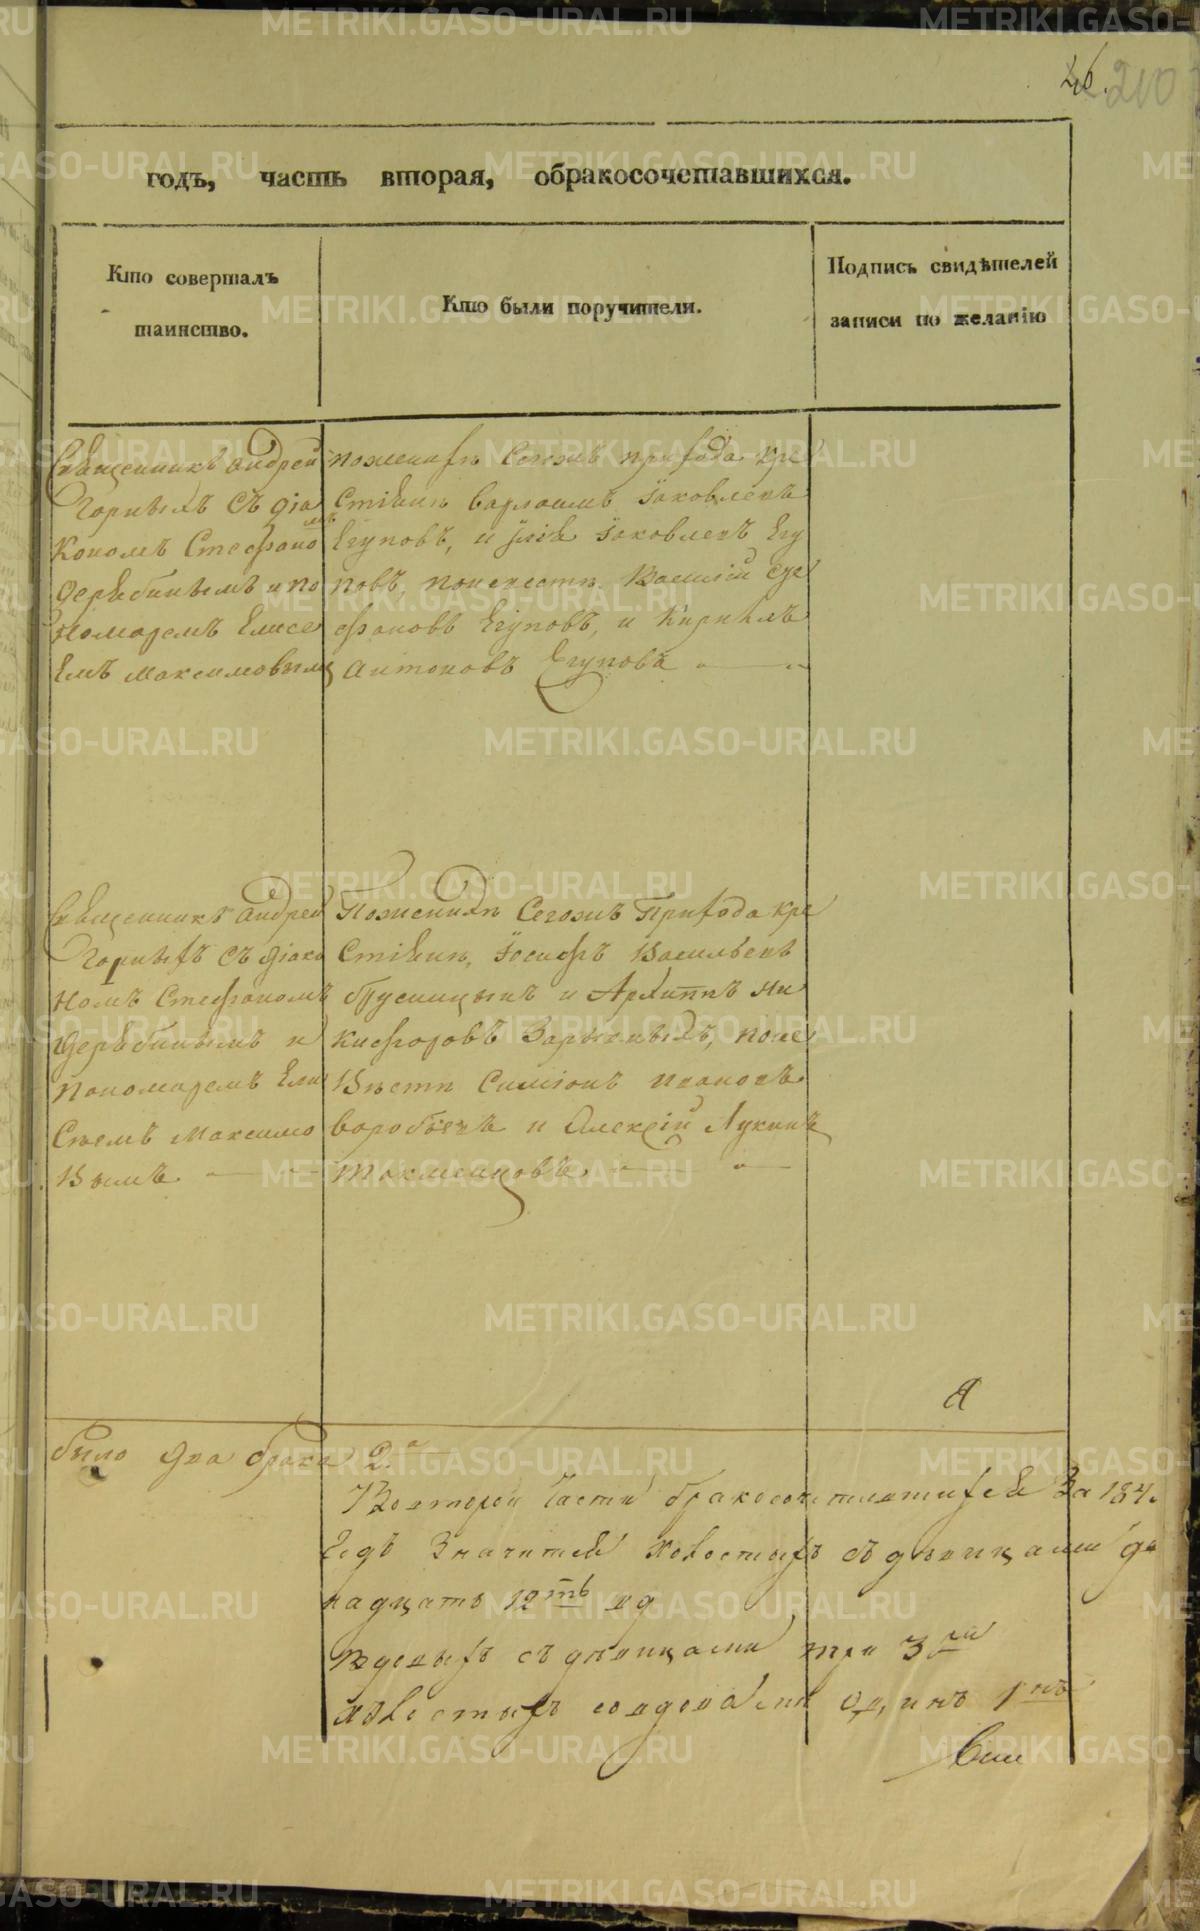 46. 210
годъ, часть вторая, обракосочетавшихся.
Кто совершалъ
таинство.
Кто были поручители.
Подпись свидѣтелей
записи по желанію
Священникъ Андрей
Горныхъ съ діа
кономъ Стефано
мъ
Дерябинымъ и по
номаремъ Елисе
емъ Максимовымъ
по женихѣ Сегожъ прихода кре
стьянѣ Варлаамъ Іаковлевъ
Егуповъ, и Іаковлевъ Егу
повъ, по невестѣ Василій Сте
фановъ Егуповъ, и Кирилъ
Антоновъ Егуповъ
Священникъ Андрей
Горныхъ съ діако
номъ Стефаномъ
Дерябинымъ и
пономаремъ Ели
сеемъ Максимо
вымъ
По женихѣ Сегожъ Прихода кре
стьянѣ, Іосифъ Васильевъ
Брусницынъ и Архиппъ Ни
кифоровъ Зарывныхъ, по не
вѣстѣ Симіонъ Ивановъ
Воробьевъ и Алексій Лукинъ
Токменцовъ.
было два брака 2.а
Во второй Части бракосочетавшихся За 184
Годъ Значится холостыхъ съ дѣвицами две
надцать 12ть
вдовыхъ съ дѣвицами три 3ри
холостыхъ со вдовами одинъ 1нъ
METRIKI.GASO-URAL.RU